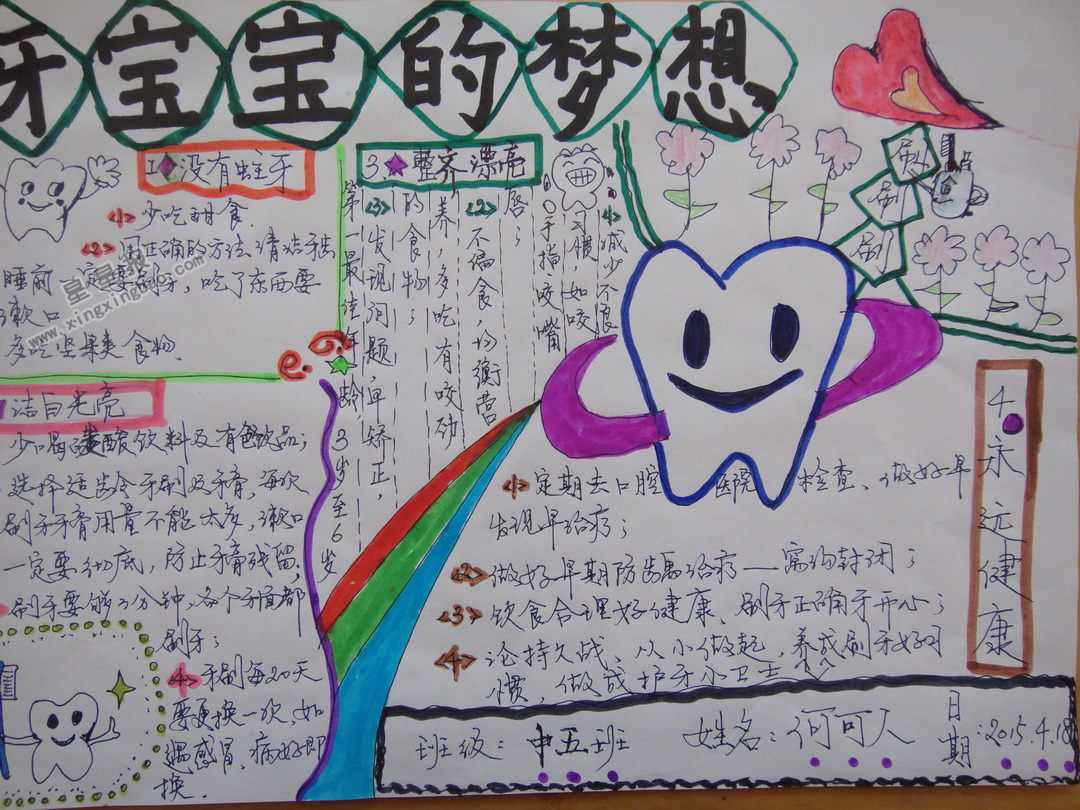 牙宝宝的梦想
1 没有蛀牙
<1> 少吃甜食.
<2> 用正确的方法清洁牙齿
睡前一定要刷牙，吃了东西要
漱口
多吃坚果类食物.
洁白光亮
少喝碳酸饮料及有色饮品；
选择适龄牙刷及牙膏，每次
刷牙牙膏用量不能太多，漱口
一定要彻底，防止牙膏残留.
刷牙要够3分钟，各个牙面都
刷牙；
<4> 牙刷每20天
要更换一次，如
遇感冒，病好即
换.
3. 整齐漂亮
<1> 减少不良
习惯 如咬
手指咬嘴
唇；
<2> 不偏食，均衡营
养，多吃有咬劲
的食物；
<3> 发现问题，早矫正，
第一最佳年龄3岁至6岁
刷
刷
刷
4 永远健康
<1> 定期去口腔医院检查、做好早
发现早治疗；
<2> 做好早期防龋治疗——窝沟封闭；
<3> 饮食合理好健康、刷牙正确牙开心；
<4> 论持久战、从小做起，养成刷牙好习
惯，做成护牙小卫士
班级：中五班 姓名：何可人 日期：2015.4.18
星星报
www.xingxingbao.com